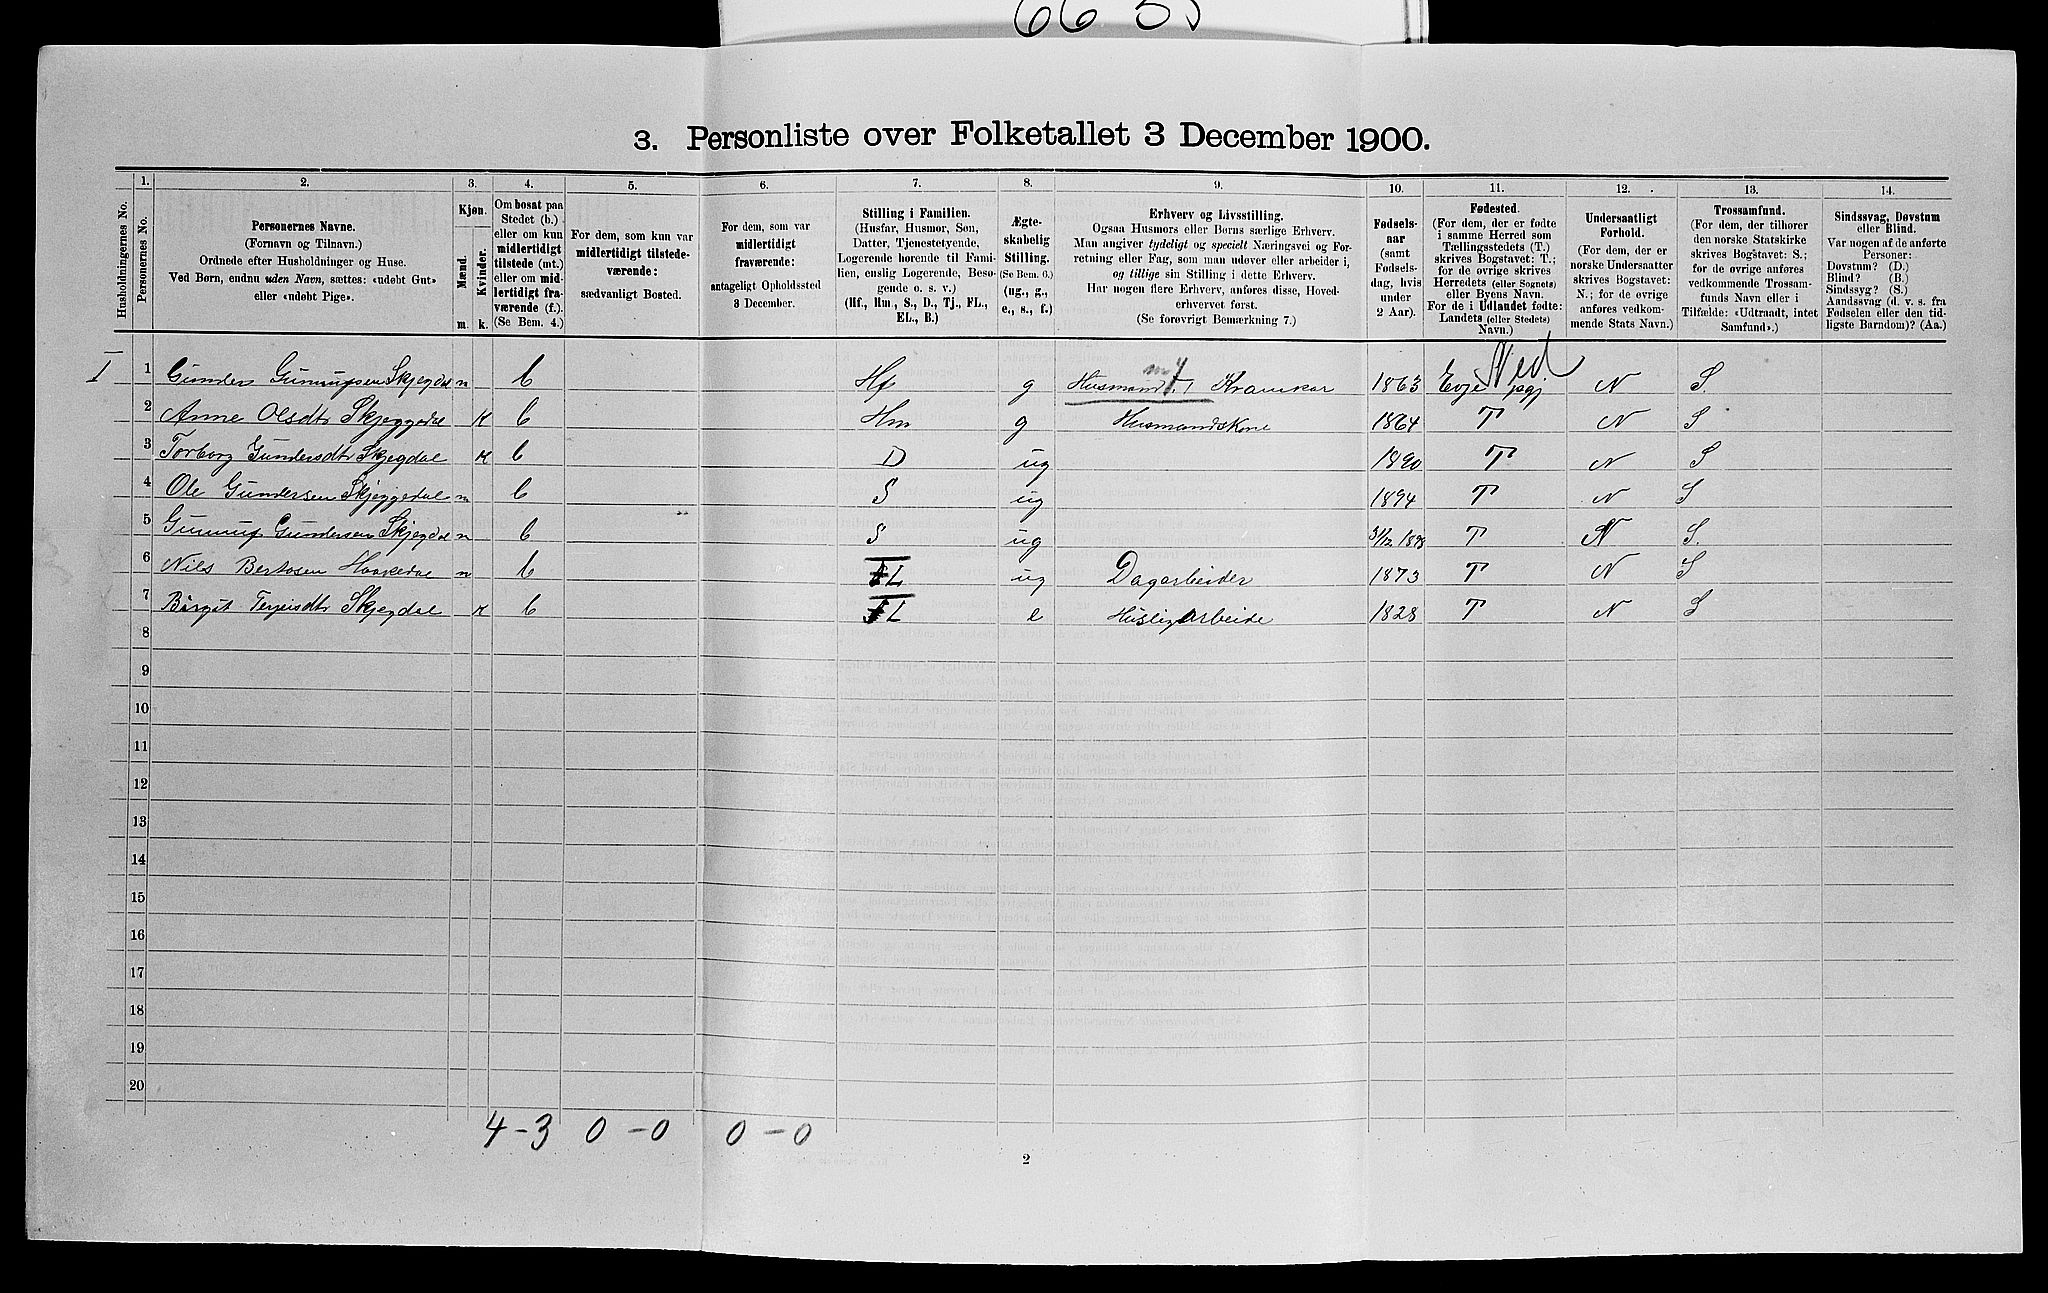 66 35
3. Personliste over Folketallet 3 December 1900.
Husholdningernes No.
1. Personernes No.
2. Personernes Navne.
(Fornavn og Tilnavn.)
Ordnede efter Husholdninger og Huse.
Ved Børn, endnu uden Navn, sættes: «udøbt Gut»
eller «udøbt Pige».
3. Kjøn.
Mænd. Kvinder.
m. k.
4. Om bosat paa
Stedet (b.)
eller om kun
midlertidigt
tilstede (mt.)
eller om mid-
lertidigt fra-
værende (f.).
(Se Bem. 4.)
5. For dem, som kun var
midlertidigt tilstede-
værende:
sædvanligt Bosted.
6. For dem, som var
midlertidigt
fraværende:
antageligt Opholdssted
3 December.
7. Stilling i Familien.
(Husfar, Husmor, Søn,
Datter, Tjenestetyende,
Logerende hørende til Fami-
lien, enslig Logerende, Beso-
gende o. s. v.)
(Hf., Hm., S., D., Tj., FL.,
EL., B.)
8. Ægte-
skabelig
Stilling.
(Se Bem. 6.)
(ug., g.,
e., s., f.)
9. Erhverv og Livsstilling.
Ogsaa Husmors eller Børns særlige Erhverv.
Man angiver tydeligt og specielt Næringsvei og For-
retning eller Fag, som man udøver eller arbeider i,
og tillige sin Stilling i dette Erhverv.
Har nogen flere Erhverv, anføres disse, Hoved-
erhvervet først.
(Se forøvrigt Bemærkning 7.)
10. Fødsels-
aar
(samt
Fødsels-
dag, hvis
under
2 Aar).
11. Fødested.
(For dem, der er fødte
i samme Herred som
Tællingsstedets (T.)
skrives Bogstavet: T.;
for de øvrige skrives
Herredets (eller Sognets)
eller Byens Navn.
For de i Udlandet fødte:
Landets (eller Stedets)
Navn.)
12. Undersaatligt
Forhold.
(For dem, der er
norske Undersaatter
skrives Bogstavet:
N.; for de øvrige
anføres vedkom-
mende Stats Navn.)
13. Trossamfund.
(For dem, der tilhører
den norske Statskirke
skrives Bogstavet: S.;
for de øvrige anføres
vedkommende Trossam-
funds Navn eller i
Tilfælde: «Udtraadt, intet
Samfund».)
14. Sindssvag, Døvstum
eller Blind.
Var nogen af de anførte
Personer:
Døvstum? (D.)
Blind? (B.)
Sindssyg? (S.)
Aandssvag (d. v. s. fra
Fødselen eller den tid-
ligste Barndom)? (Aa.)
I 1 Gunders Gunnufsen Skjegdal m b Hf g Husmand Kramkar 1863 Evje Ned N S.
2 Anne Olsdtr Skjeggedal K b Hm g Husmandskone 1864 T N S
3 Torborg Gundersdtr Skjegdal K b D ug 1890 T N S
4 Ole Gundersen Skjeggedal m b S ug 1894 T N S
5 Gunnuf Gundersen Skjegdal m b S ug 31/12 1898 T N S.
6 Nils Bertosen Haakedal m b L ug Dagarbeider 1873 T N S
7 Birgit Terjeisdtr Skjegdal K b L e Husligarbeide 1828 T N S
8
9
10
11
12
13
14
15
16
17
18
19
20
4-3 0-0 0-0
2